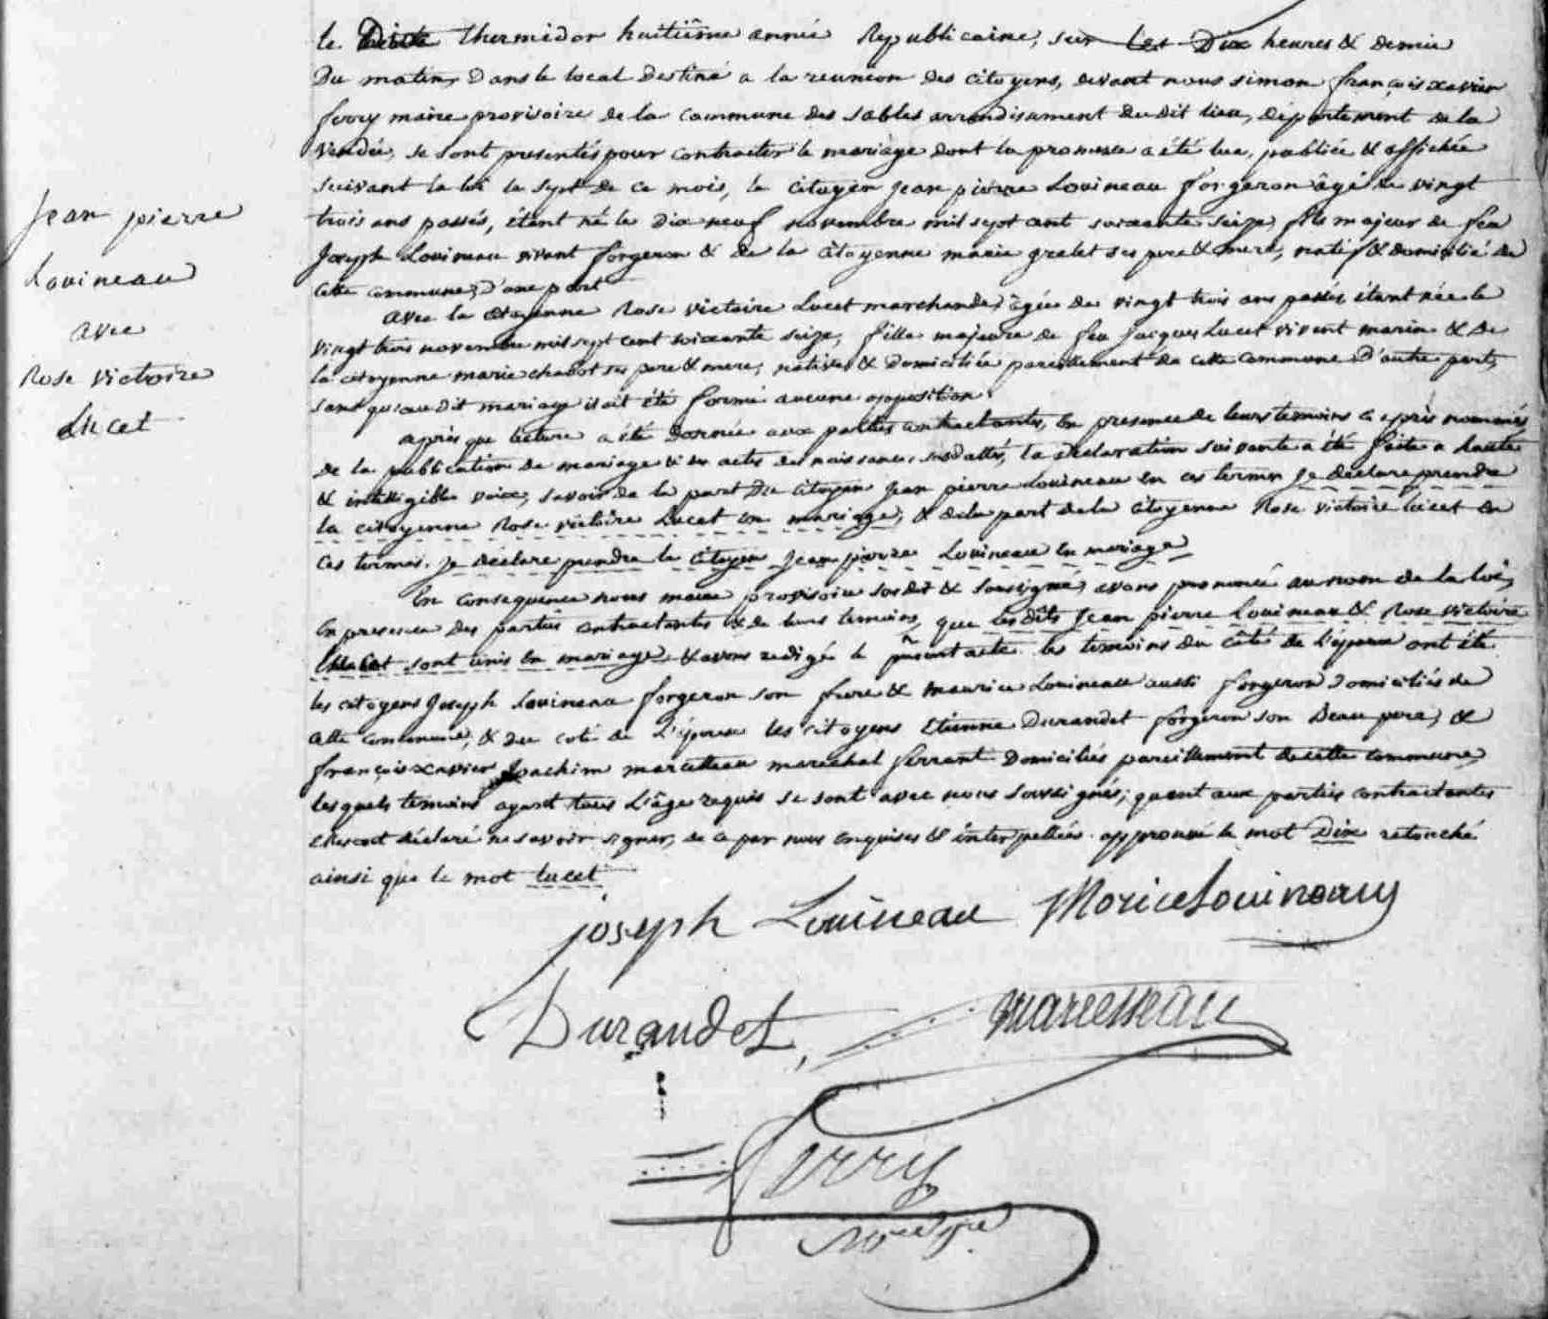 Jean pierre
Louineau
avec
Rose victoire
Lucet
le Dix thermidor huitième année Republicaine, sur les Dix heures & demie
Du matin, Dans le local destiné a la reunion des citoyens, devant nous simon françois xavier
ferry maire provisoire de la commune des sables arrondissement du dit lieu, département de la
vendée, se sont presentés pour contracter le mariage dont la promesse a été lue, publiée & affichée
suivant la loi le sept de ce mois, le citoyen Jean pierre Louineau forgeron âgé de vingt
trois ans passés, étant né le dix neuf novembre mil sept cent soixante seize, fils majeur de feu
Joseph Louineau vivant forgeron & de la citoyenne marie grelet ses pere & mere, natif & domicilié de
cette commune, d'une part
avec la citoyenne Rose victoire Lucet marchande, âgée de vingt trois ans passés étant née le
vingt trois novembre mil sept cent soixante seize, fille majeure de feu Jacques Lucet vivant marin & de
la citoyenne marie chabot ses pere & mere, native & domiciliée pareillement de cette commune D'autre part,
sans qu'au dit mariage il ait été formé aucune opposition.
après que lecture a été donnée aux parties contractantes, en presence de leurs temoins ci après nommés
de la publication de mariage & des actes de naissances susdattés, la declaration suivante a été faite a haute
& intelligible voix, savoir de la part du citoyen Jean pierre Louineau en ces termes Je declare prendre
la citoyenne Rose victoire Lucet en mariage, & de la part de la citoyenne Rose victoire Lucet en
ces termes. Je declare prendre le citoyen Jean pierre Louineau en mariage
En consequence nous maire provisoire susdit & soussigné, avons prononcé au nom de la loi,
en presence des parties contractantes & de leurs temoins, que les dits Jean pierre Louineau & Rose victoire
Lucet sont unis en mariage & avons redigé le présent acte. les temoins du côté de l'epoux ont été
les citoyens Joseph Louineau forgeron son frere & maurice Louineau aussi forgeron domiciliés de
cette commune, & du coté de l'épouse les citoyens Etienne Durandet forgeron son beau pere, &
françois xavier Joachim marcetteau marechal ferrant Domiciliés pareillement de cette commune,
lesquels temoins ayant tous l'âge requis se sont avec nous soussignés; quant aux parties contractantes
elles ont déclaré ne savoir signer, de ce par nous enquises & interpellées. approuvé le mot Dix retouché
ainsi que le mot lucet
joseph Louineau Morice Louineau
Durandet, marcetteau
ferry